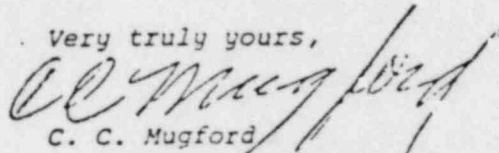 Very truly yours,
CC Mugford
C. C. Mugford